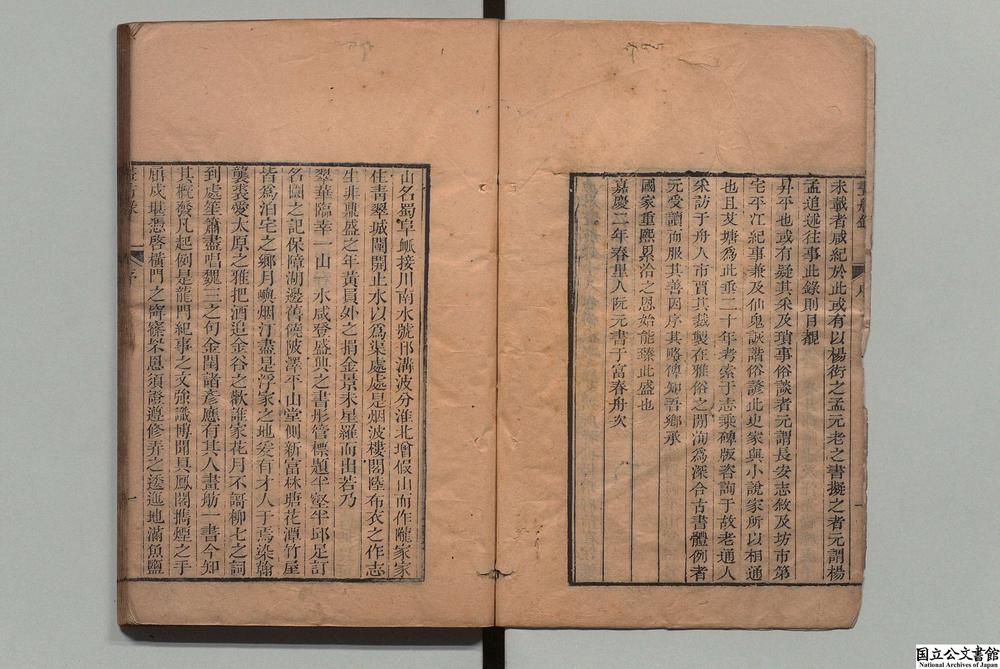 未載者咸紀於此或有以楊衒之孟元老之書擬之者元謂楊
孟追述往事此錄則目覩
昇平也或有疑其采及瑣事俗談者元謂長安志敘及坊市第
宅平江紀事兼及仙鬼詼諧俗諺此史家與小說家所以相通
也且艾塘為此垂二十年考索于志乘碑版咨詢于故老通人
采訪于舟人市賈其裁製在雅俗之間洵為深合古書體例者
元受讀而服其善因序其略俾知吾鄉承
國家重熙累洽之恩始能臻此盛也
嘉慶二年春里人阮元書于富春舟次
一
山名蜀阜岷接川南水號邗溝波分淮北增假山而作隴家家
住青翠城闉開止水以為渠處處是烟波樓閣陸布衣之作志
生非鼎盛之年黃員外之捐金景未星羅而出若乃
翠華臨幸一山一水咸登盛典之書彤管標題半壑半邱足訂
名園之記保障湖邊舊饒陂澤平山堂側新富林塘花潭竹屋
皆為泊宅之鄉月嶼烟汀盡是浮家之地爰有才人于焉染翰
龔裘愛太原之雅把酒追金谷之歡誰家花月不謌柳七之詞
到處笙簫盡唱魏三之句金閨諸彥應有其人畫舫一書今知
其概發凡起例是龍門紀事之文強識博聞具鳳閣攡煙之手
屆戍堪憑啓橫門之窗寮罘罳須證遵修弄之逶迤地滿魚鹽
序
一
国立公文書館
National Archives of Japan